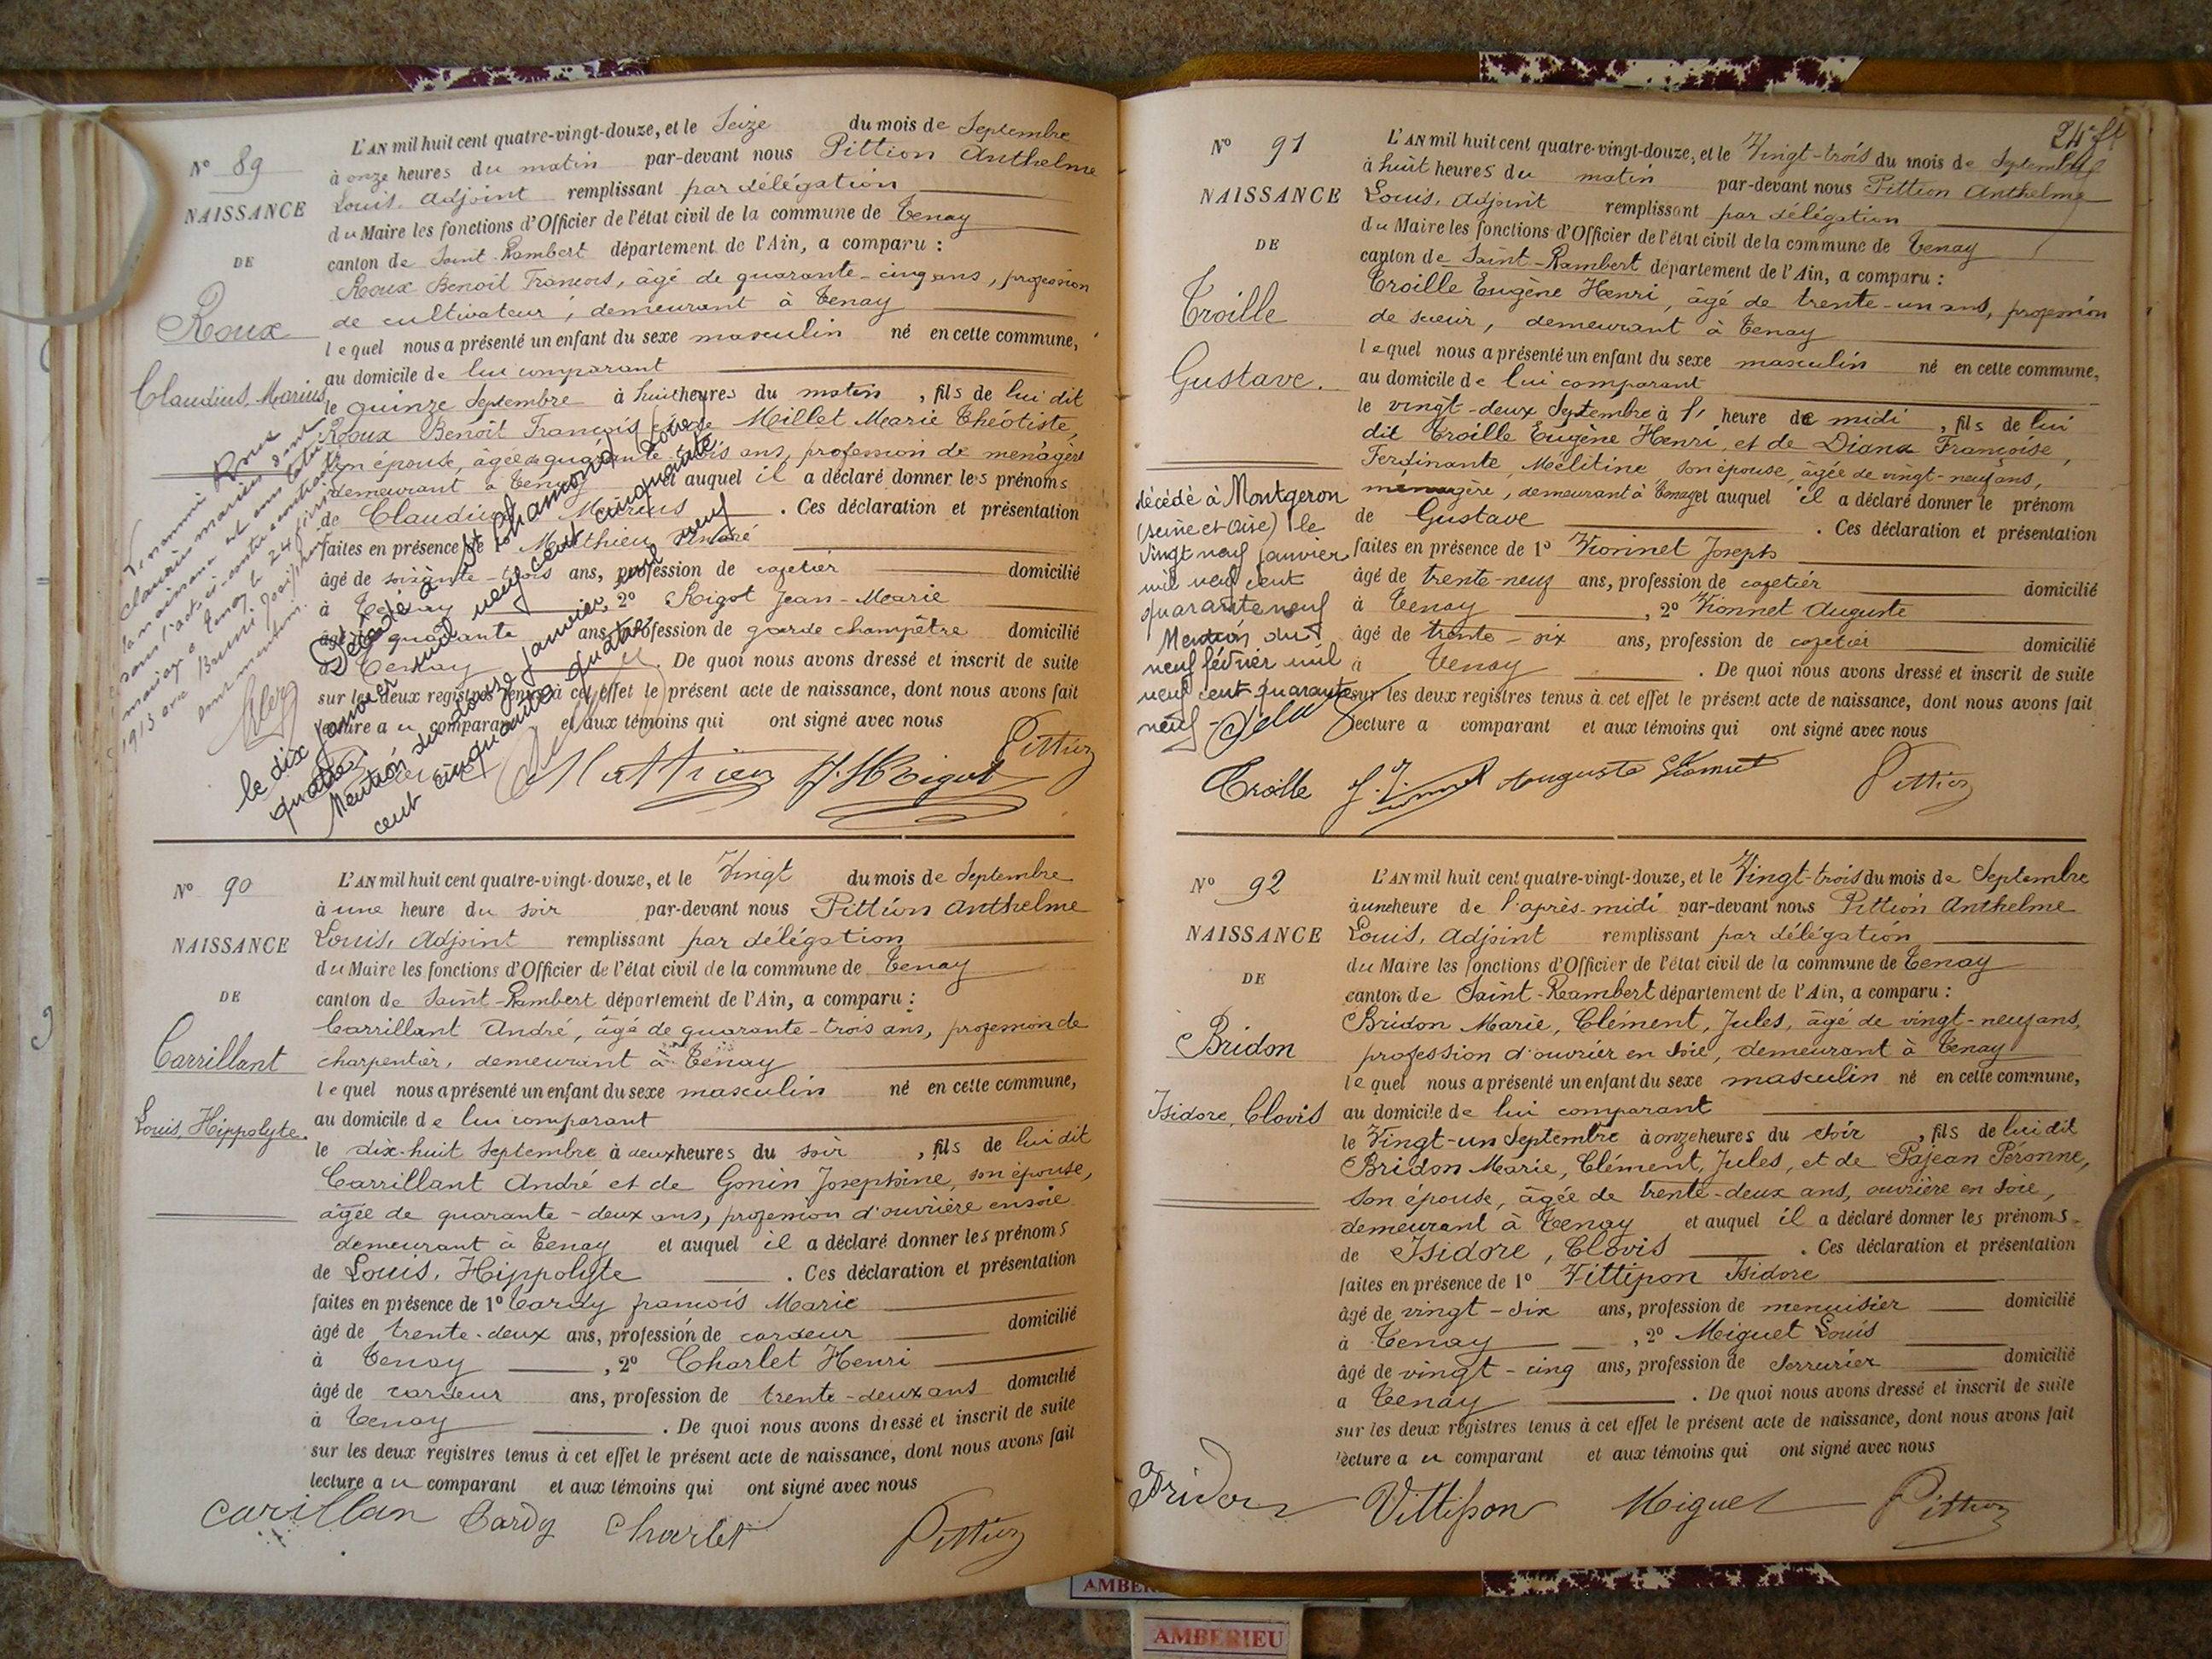 L'AN mil huit cent quatre-vingt-douze, et le Seize du mois de Septembre
N° 89
à onze heures du matin par-devant nous Pittion Anthelme
NAISSANCE
Louis, Adjoint remplissant par délégation
du Maire les fonctions d'Officier de l'état civil de la commune de Tenay
DE
canton de Saint-Rambert département de l'Ain, a comparu :
Roux Benoit François, âgé de quarante-cinq ans, profession
Roux
de cultivateur, demeurant à Tenay
lequel nous a présenté un enfant du sexe masculin né en cette commune,
Claudius, Marius
au domicile de lui comparant
le quinze Septembre à huit heures du matin, fils de lui dit
Roux Benoit François et de Millet Marie Théotiste,
son épouse, âgée de quarante-trois ans, profession de ménagère
demeurant à Tenay et auquel il a déclaré donner les prénoms
de Claudius Marius. Ces déclaration et présentation
faites en présence de 1° Matthieu André
âgé de soixante-trois ans, profession de cafetier domicilié
à Tenay, 2° Rigot Jean-Marie
âgé de quarante ans, profession de garde champêtre domicilié
à Tenay. De quoi nous avons dressé et inscrit de suite
sur les deux registres tenus à cet effet le présent acte de naissance, dont nous avons fait
lecture au comparant et aux témoins qui ont signé avec nous
Décédé à St Chamond (Loire)
le dix janvier mil neuf cent cinquante
quatre.
Mention du douze janvier mil neuf
cent cinquante quatre
Matthieu J. M Rigot Pittion
N° 90
L'AN mil huit cent quatre-vingt-douze, et le Vingt du mois de Septembre
à une heure du soir par-devant nous Pittion Anthelme
NAISSANCE
Louis, Adjoint remplissant par délégation
du Maire les fonctions d'Officier de l'état civil de la commune de Tenay
DE
canton de Saint-Rambert département de l'Ain, a comparu :
Carrillant André, âgé de quarante-trois ans, profession de
Carrillant
charpentier, demeurant à Tenay
lequel nous a présenté un enfant du sexe masculin né en cette commune,
Louis, Hippolyte.
au domicile de lui comparant
le dix-huit Septembre à deux heures du soir, fils de lui dit
Carrillant André et de Gonin Josephine, son épouse,
âgée de quarante-deux ans, profession d'ouvrière en soie
demeurant à Tenay et auquel il a déclaré donner les prénoms
de Louis, Hippolyte. Ces déclaration et présentation
faites en présence de 1° Cardy françois Marie
âgé de trente-deux ans, profession de cardeur domicilié
à Tenay, 2° Charlet Henri
âgé de cardeur ans, profession de trente-deux ans domicilié
à Tenay. De quoi nous avons dressé et inscrit de suite
sur les deux registres tenus à cet effet le présent acte de naissance, dont nous avons fait
lecture au comparant et aux témoins qui ont signé avec nous
Carillan Cardy Charlet Pittion
N° 91
L'AN mil huit cent quatre-vingt-douze, et le Vingt-trois du mois de Septembre
à huit heures du matin par-devant nous Pittion Anthelme
NAISSANCE
Louis, Adjoint remplissant par délégation
du Maire les fonctions d'Officier de l'état civil de la commune de Tenay
DE
canton de Saint-Rambert département de l'Ain, a comparu :
Troille Eugène Henri, âgé de trente-un ans, profession
Troille
de scieur, demeurant à Tenay
lequel nous a présenté un enfant du sexe masculin né en cette commune,
Gustave.
au domicile de lui comparant
le vingt-deux Septembre à 1' heure de midi, fils de lui
dit Troille Eugène Henri, et de Diana Françoise,
Ferdinante, Mélitine, son épouse, âgée de vingt-neuf ans,
ménagère, demeurant à Tenay et auquel il a déclaré donner le prénom
de Gustave. Ces déclaration et présentation
faites en présence de 1° Vionnet Joseph
âgé de trente-neuf ans, profession de cafetier domicilié
à Tenay, 2° Vionnet Auguste
âgé de trente-six ans, profession de cafetier domicilié
à Tenay. De quoi nous avons dressé et inscrit de suite
sur les deux registres tenus à cet effet le présent acte de naissance, dont nous avons fait
lecture a comparant et aux témoins qui ont signé avec nous
décédé à Montgeron
(Seine et Oise) le
vingt neuf janvier
mil neuf cent
quarante neuf
Mention du
neuf février mil
neuf cent quarante
neuf
Troille J. Vionnet Auguste Vionnet Pittion
N° 92
L'AN mil huit cent quatre-vingt-douze, et le Vingt-trois du mois de Septembre
à une heure de l'après-midi par-devant nous Pittion Anthelme
NAISSANCE
Louis, Adjoint remplissant par délégation
du Maire les fonctions d'Officier de l'état civil de la commune de Tenay
DE
canton de Saint-Rambert département de l'Ain, a comparu :
Bridon Marie, Clément, Jules, âgé de vingt-neuf ans,
Bridon
profession d'ouvrier en soie, demeurant à Tenay
lequel nous a présenté un enfant du sexe masculin né en cette commune,
Isidore, Clovis
au domicile de lui comparant
le Vingt-un Septembre à onze heures du soir, fils de lui dit
Bridon Marie, Clément, Jules, et de Pajean Péronne,
son épouse, âgée de trente-deux ans, ouvrière en soie,
demeurant à Tenay et auquel il a déclaré donner les prénoms
de Isidore, Clovis. Ces déclaration et présentation
faites en présence de 1° Vittipon Isidore
âgé de vingt-six ans, profession de menuisier domicilié
à Tenay, 2° Miguet Louis
âgé de vingt-cinq ans, profession de Serrurier domicilié
a Tenay. De quoi nous avons dressé et inscrit de suite
sur les deux registres tenus à cet effet le présent acte de naissance, dont nous avons fait
lecture au comparant et aux témoins qui ont signé avec nous
Bridon Vittipon Miguet Pittion
AMBERIEU